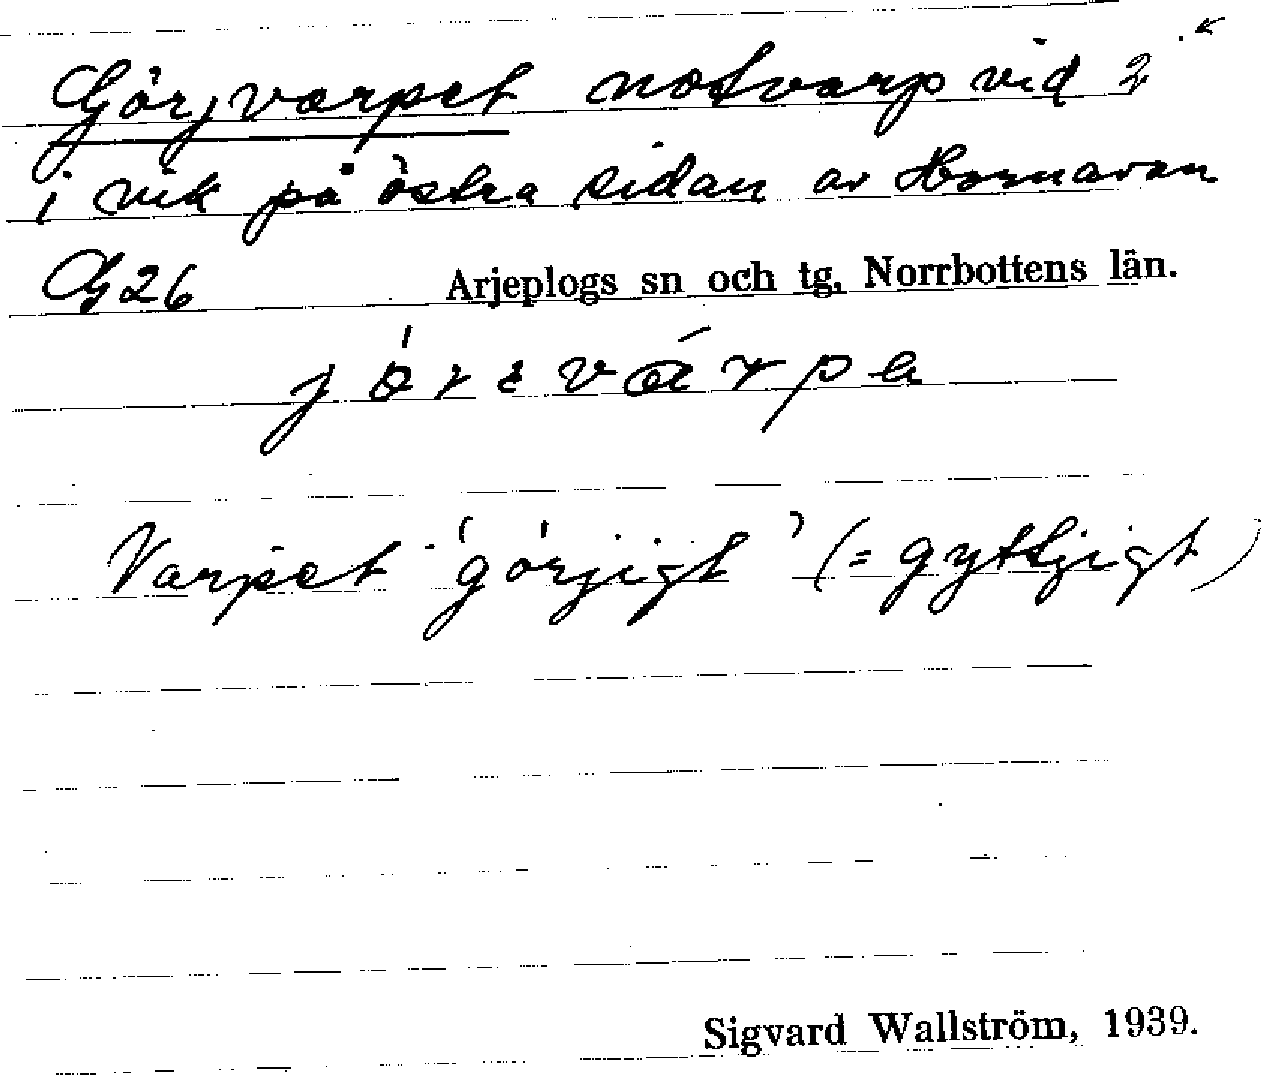 Görjvarpet notvarp vid 2
i vik på östra sidan av Hornavan
G 26 Arjeplogs sn och tg, Norrbottens län.
Varpet "görjigt" (= gyttjigt)
Sigvard Wallström, 1939.